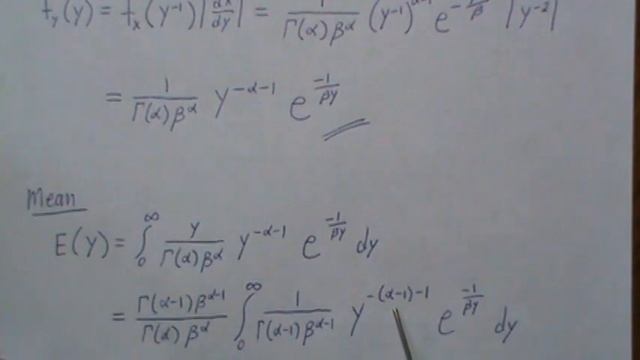 f_y(y) = f_x(y^{-1}) |dx/dy| = 1/(Γ(α)β^α) (y^{-1})^{α-1} e^{-y^{-1}/β} |y^{-2}|
= 1/(Γ(α)β^α) y^{-α-1} e^{-1/(βy)}
Mean
E(Y) = ∫_0^∞ y/(Γ(α)β^α) y^{-α-1} e^{-1/(βy)} dy
= Γ(α-1)β^{α-1}/(Γ(α)β^α) ∫_0^∞ 1/(Γ(α-1)β^{α-1}) y^{-(α-1)-1} e^{-1/(βy)} dy